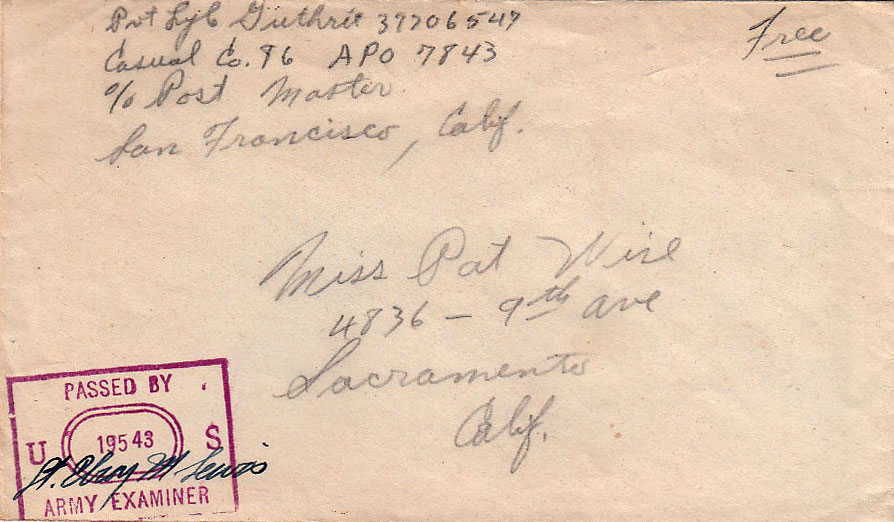 Pvt Lyle Guthrie 39706547
Free
Casual Co. 96 APO 7843
c/o Post Master
San Francisco, Calif.
Miss Pat Wise
4836 - 9th ave
Sacramento
Calif.
PASSED BY
U 19543 S
ARMY EXAMINER